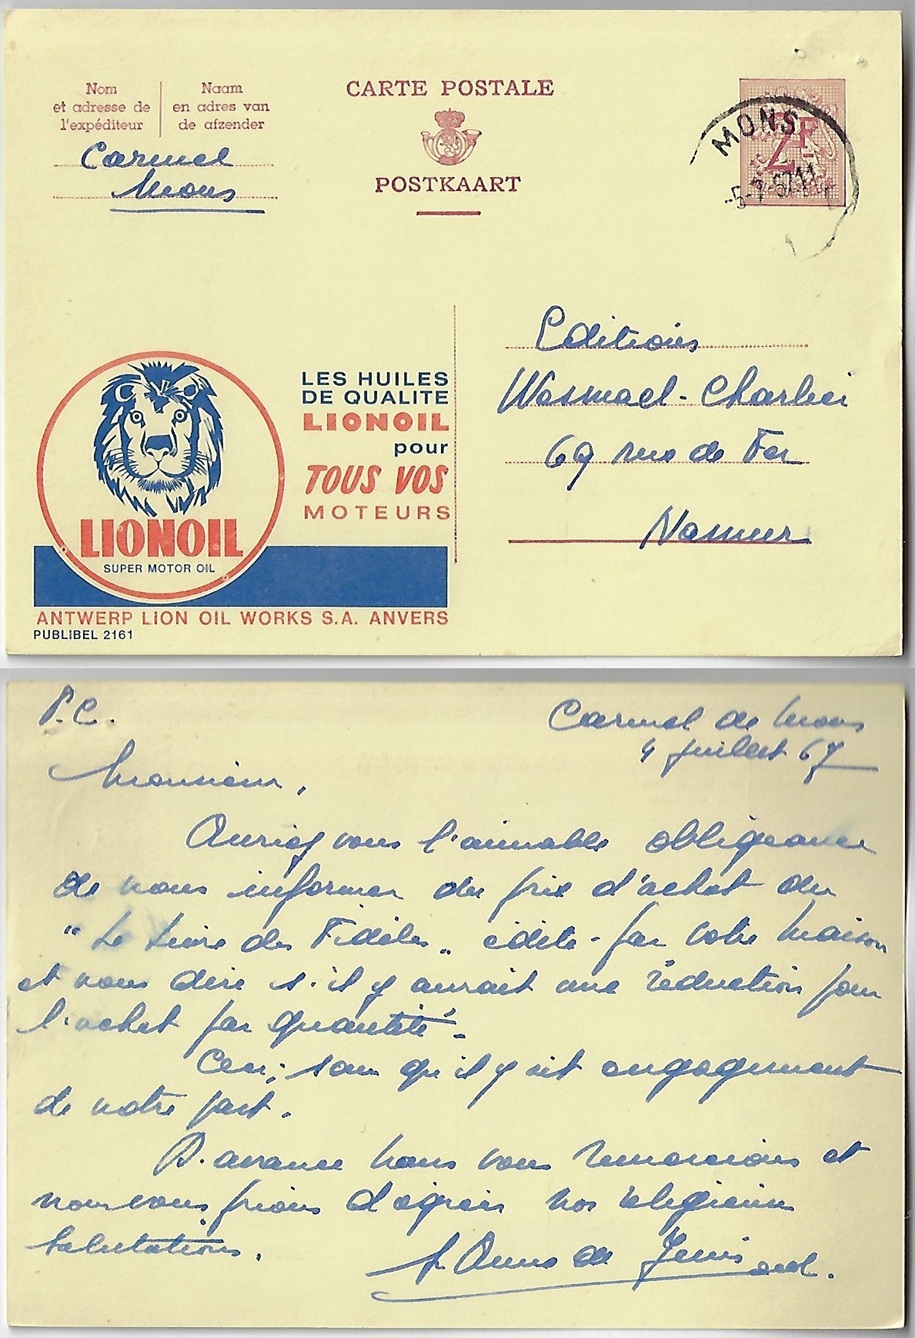 Nom
et adresse de
l'expéditeur
Naam
en adres van
de afzender
Carmel
Mons
CARTE POSTALE
POSTKAART
2F
MONS
-5-7-67 11
Editions
Wasmael-Charlier
69 rue de Fer
Namur
LES HUILES
DE QUALITE
LIONOIL
pour
TOUS VOS
MOTEURS
LIONOIL
SUPER MOTOR OIL
ANTWERP LION OIL WORKS S.A. ANVERS
PUBLIBEL 2161
P.C.
Carmel de Mons
4 Juillet 67
Monsieur,
Auriez vous l'aimable obligeance
de nous informer du prix d'achat du
"Le Livre des Fidèles" édité par votre Maison
et nous dire s'il y aurait une réduction pour
l'achat par quantité.
Ceci, sans qu'il y ait engagement
de notre part.
D'avance nous vous remercions et
nous vous prions d'agréer nos religieuses
salutations.
Sr Anne de Jésus